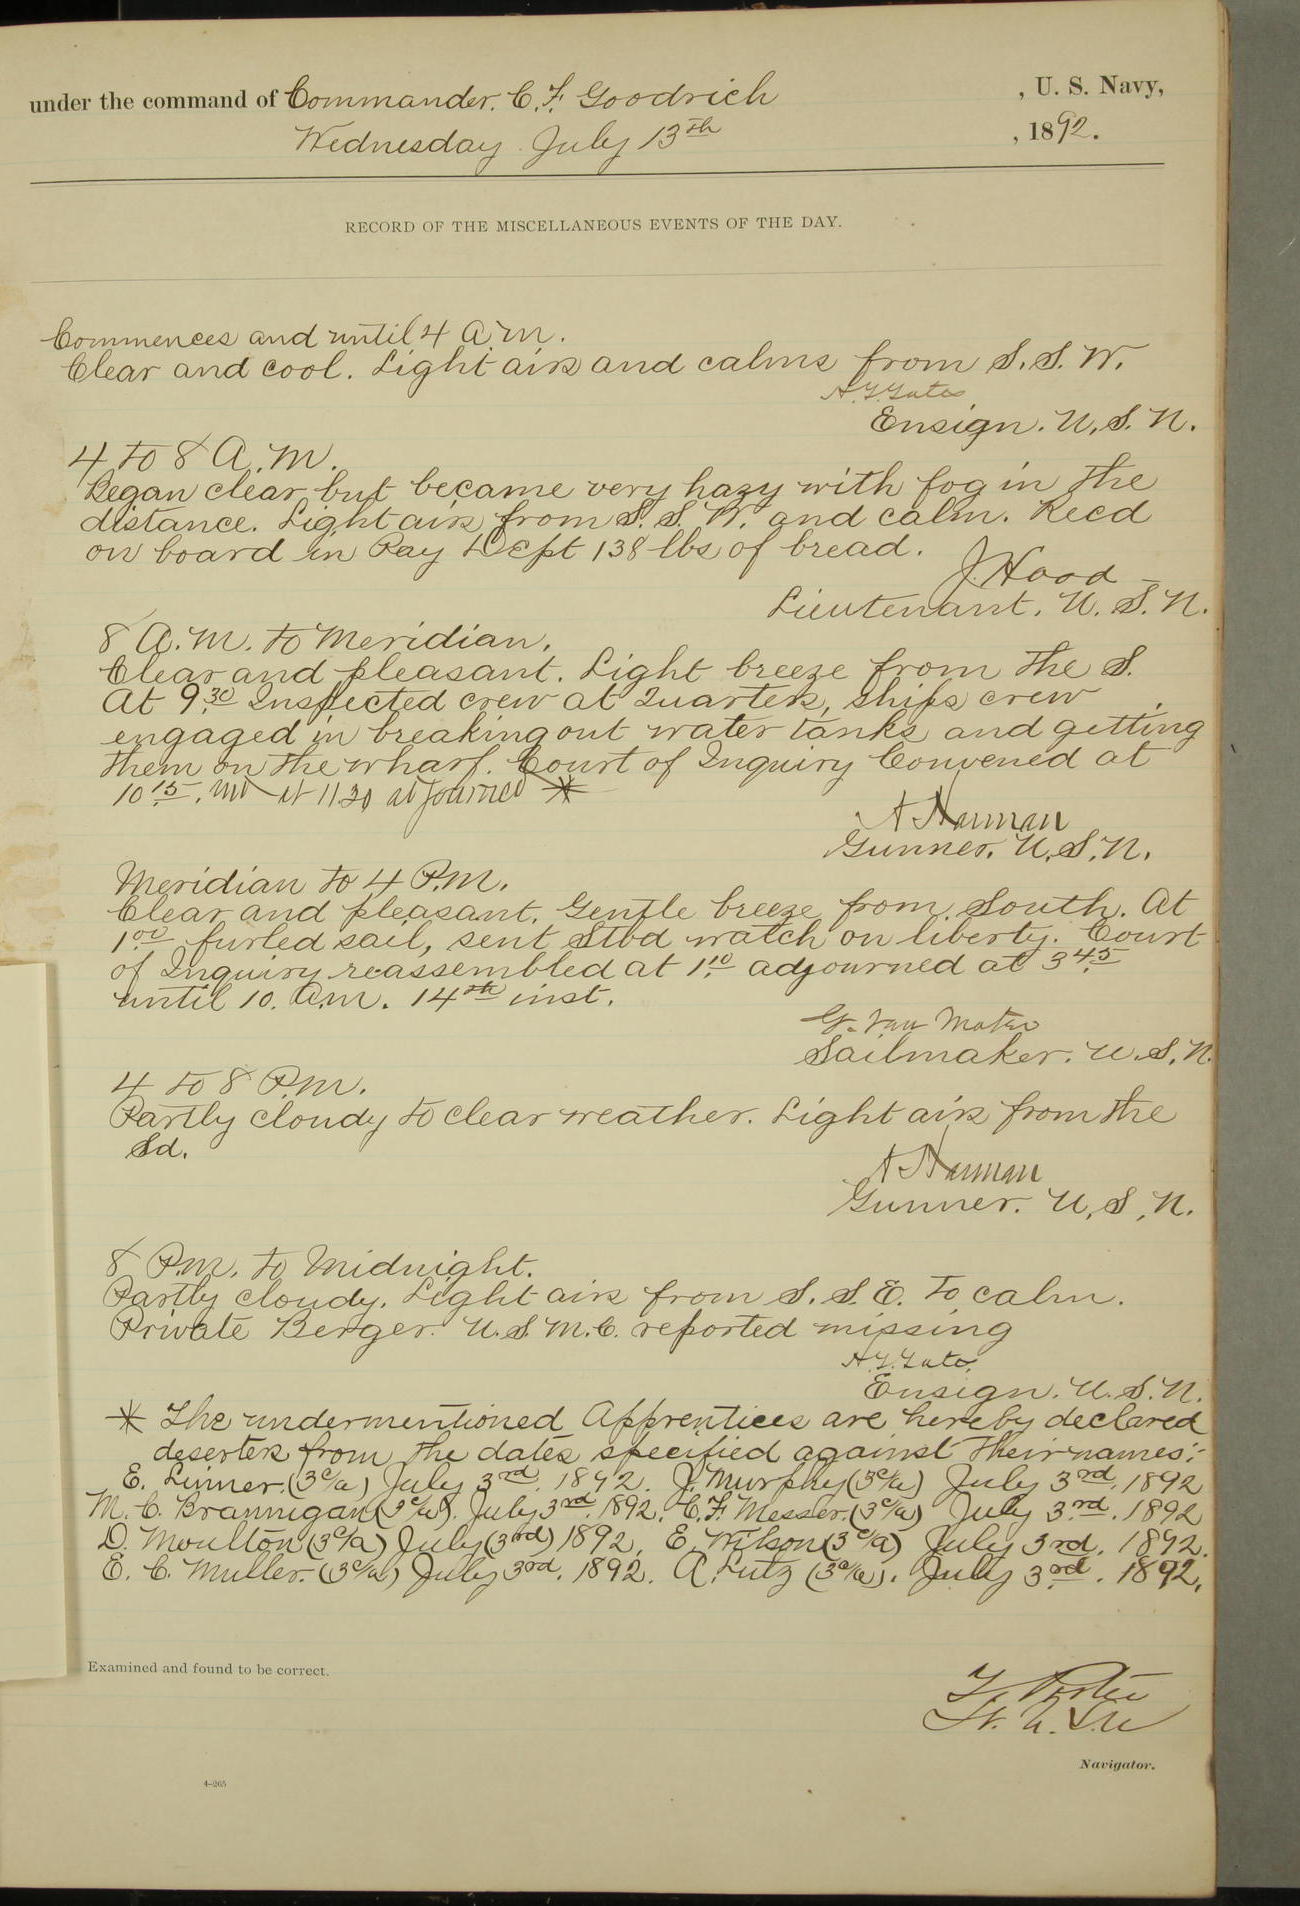 under the command of Commander. C. F. Goodrich , U. S. Navy,
Wednesday July 13th , 1892.
RECORD OF THE MISCELLANEOUS EVENTS OF THE DAY.
Commences and until 4 A.M.
Clear and cool. Light airs and calms from S. S. W.
Ensign. U. S. N.
4 to 8 A.M.
Began clear but became very hazy with fog in the
distance. Light airs from S. S. W. and calm. Recd
on board in Pay Dept 138 lbs of bread.
J. Hood
Lieutenant. U. S. N.
8 A.M. to Meridian.
Clear and pleasant. Light breeze from the S.
At 9.30 Inspected crew at Quarters, ships crew
engaged in breaking out water tanks and getting
them on the wharf. Court of Inquiry Convened at
10.15. and at 11.30 adjourned *
Gunner. U. S. N.
Meridian to 4 P.M.
Clear and pleasant. Gentle breeze from South. At
1.00 furled sail, sent Stbd watch on liberty. Court
of Inquiry reassembled at 1.10 adjourned at 3.45
until 10. A.M. 14th inst.
G. Van Mater
Sailmaker. U. S. N.
4 to 8 P.M.
Partly cloudy to clear weather. Light airs from the
Sd.
Gunner. U. S. N.
8 P.M. to Midnight.
Partly cloudy. Light airs from S. S. E. to calm.
Private Berger. U. S. M. C. reported missing
Ensign. U. S. N.
* The undermentioned Apprentices are hereby declared
deserters from the dates specified against their names:-
E. Linner. (3 c/a) July 3rd. 1892. J. Murphy (3 c/a) July 3rd. 1892
M. C. Brannigan (3 c/a). July 3rd. 1892. C. F. Messer. (3 c/a) July 3rd. 1892
D. Moulton (3 c/a) July (3rd) 1892. E. Wilson (3 c/a) July 3rd. 1892.
E. C. Muller. (3 c/a) July 3rd. 1892. A. Lutz (3 c/a). July 3rd. 1892.
Examined and found to be correct.
Navigator.
4-265